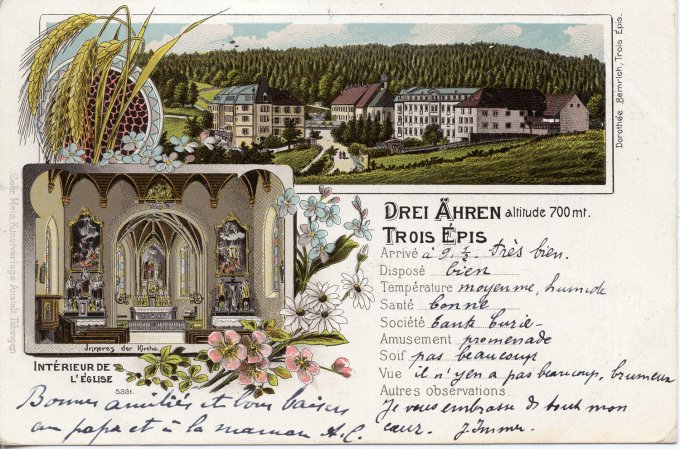 Dorothée Bemrich, Trois Épis.
Gebr. Metz Kunstverlags Anstalt Tübingen
DREI ÄHREN altitude 700 mt.
TROIS ÉPIS
Arrivé à 9 ½ très bien.
Disposé bien
Température moyenne, humide
Santé bonne
Société
Amusement promenade
Soif pas beaucoup
Vue il n'y en a pas beaucoup, brumeux
Autres observations
Je vous embrasse de tout mon
cœur. J.
Inneres der Kirche.
INTÉRIEUR DE
L'ÉGLISE
5331.
Bonnes amitiés et bons baisers
au papa et à la maman A.C.